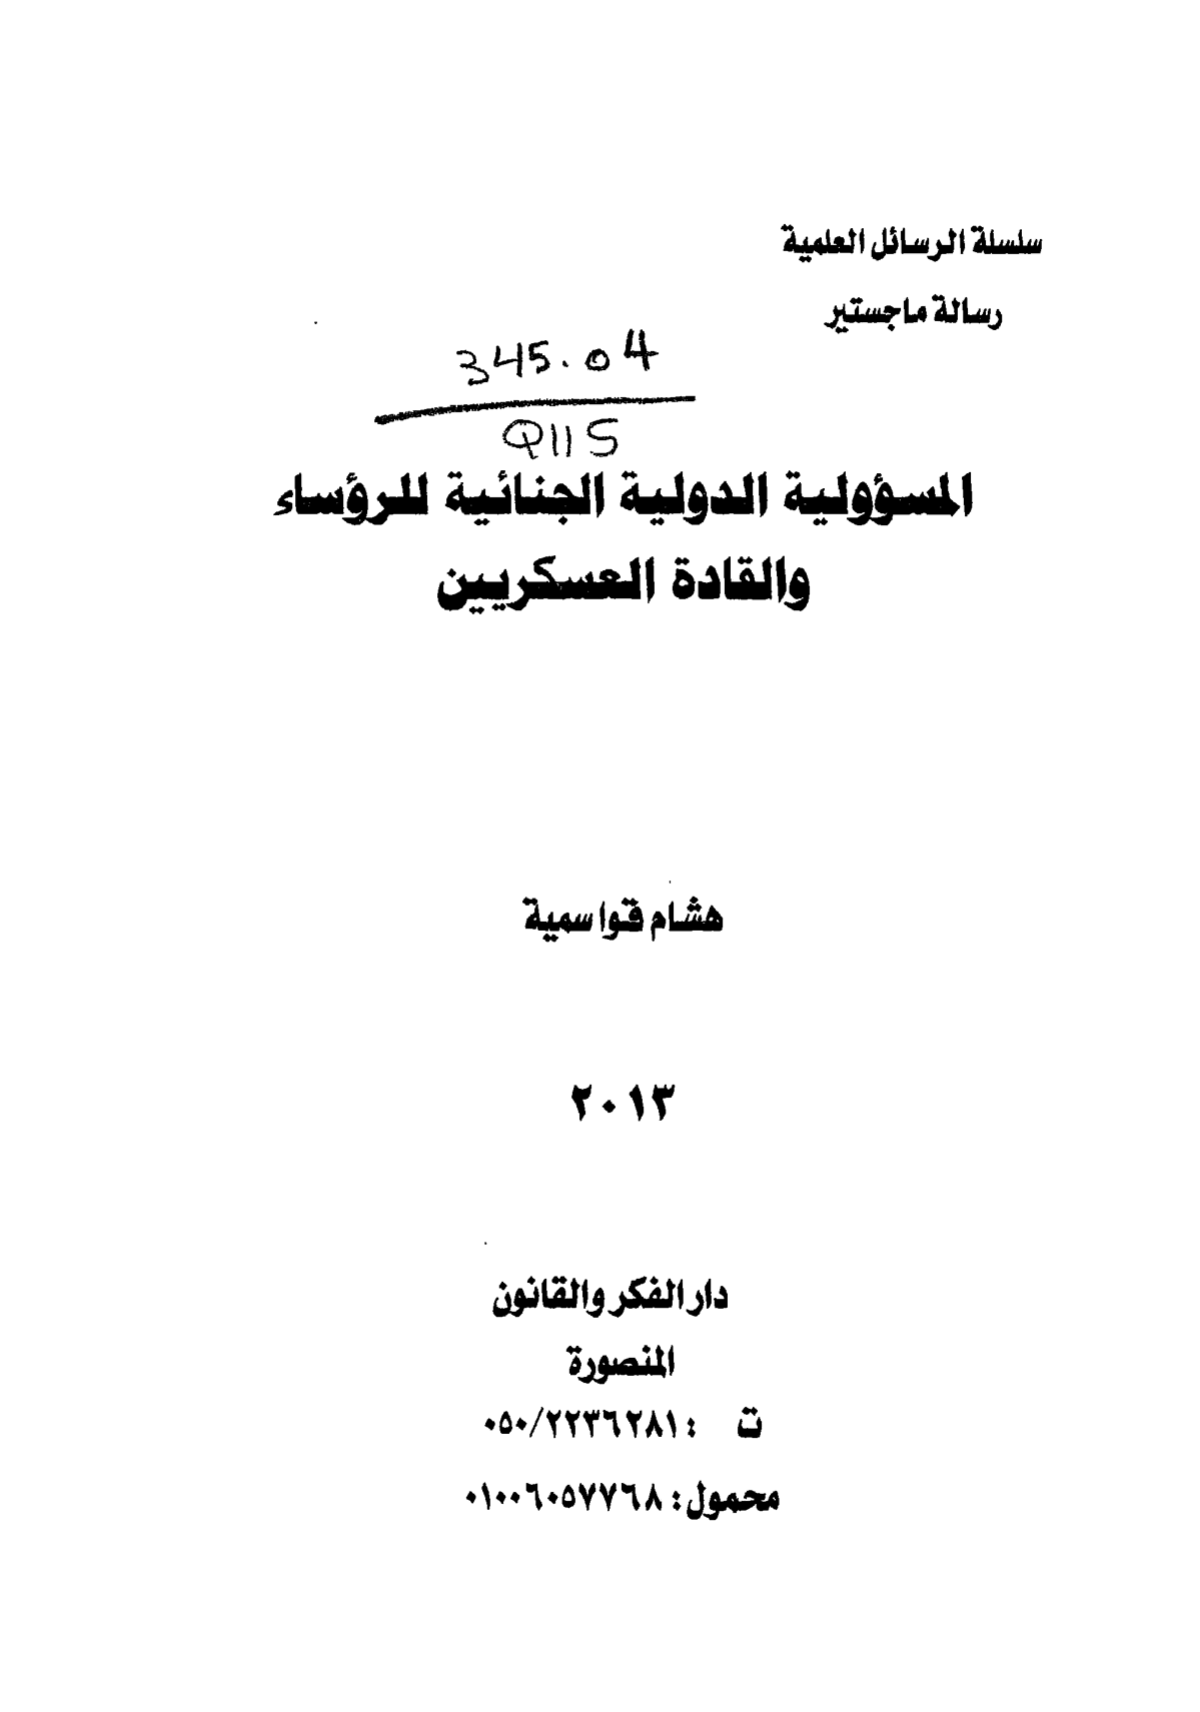 سلسلة الرسائل العلمية
رسالة ماجستير
345.04
Q11S
المسؤولية الدولية الجنائية للرؤساء
والقادة العسكريين
هشام قواسمية
٢٠١٣
دار الفكر والقانون
المنصورة
ت : ٠٥٠/٢٢٣٦٢٨١
محمول: ٠١٠٠٦٠٥٧٧٦٨